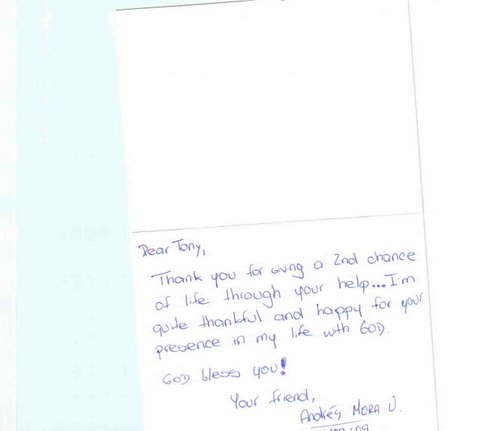 Dear Tony,
Thank you for giving a 2nd chance
of life through your help...I'm
quite thankful and happy for your
presence in my life with GOD.
GOD bless you!
Your friend,
Andrés MORA U.